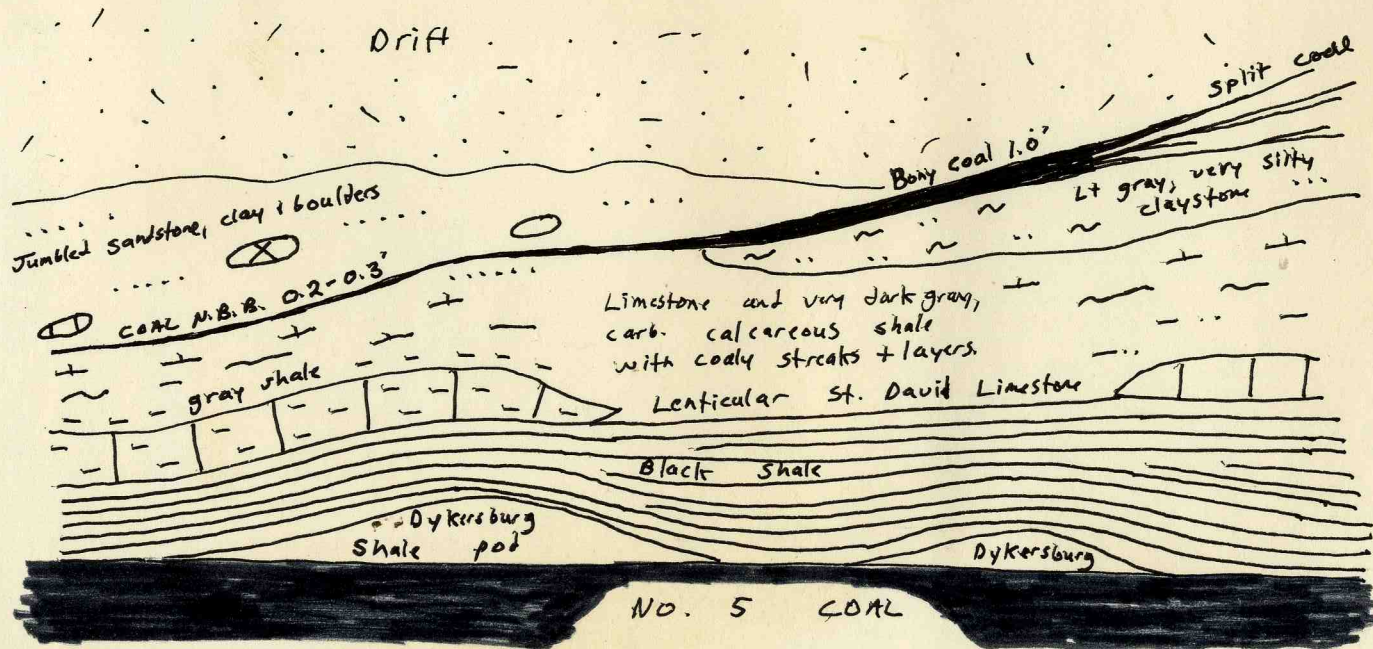 Drift
split coal
Bony coal 1.0'
Lt gray, very silty
claystone
Jumbled sandstone, clay & boulders
COAL N.B.B. 0.2-0.3'
Limestone and very dark gray,
carb. calcareous shale
with coaly streaks + layers.
gray shale
Lenticular St. David Limestone
Black Shale
Dykersburg
Shale pod
Dykersburg
NO. 5 COAL